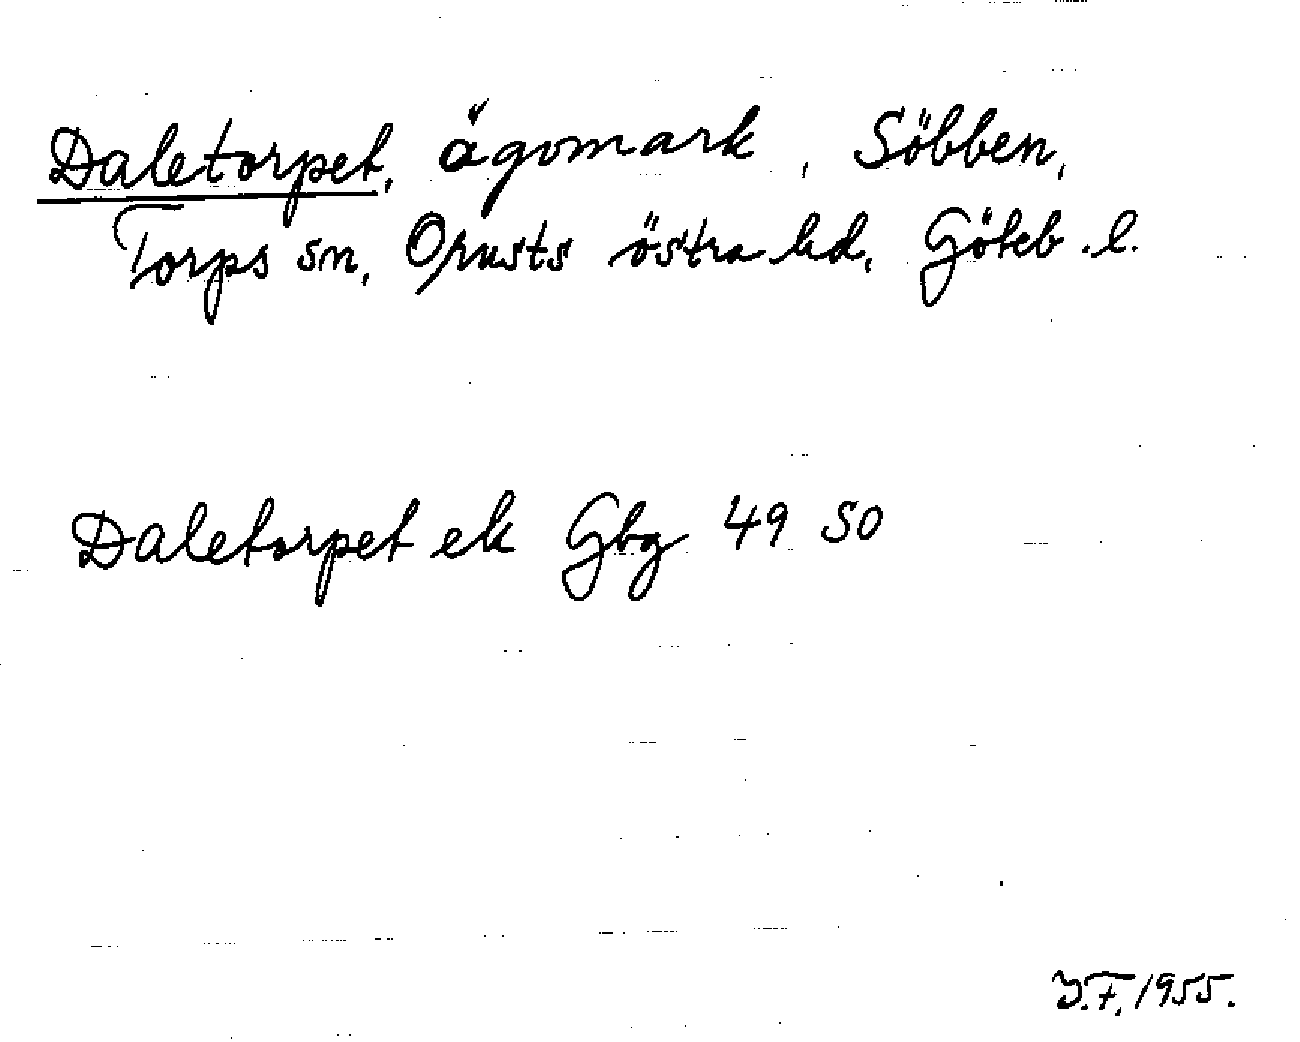 Daletorpet, ägomark, Söbben,
Torps sn, Orusts östra hd, Göteb. l.
Daletorpet ek Gbg 49 SO
J.F. 1955.